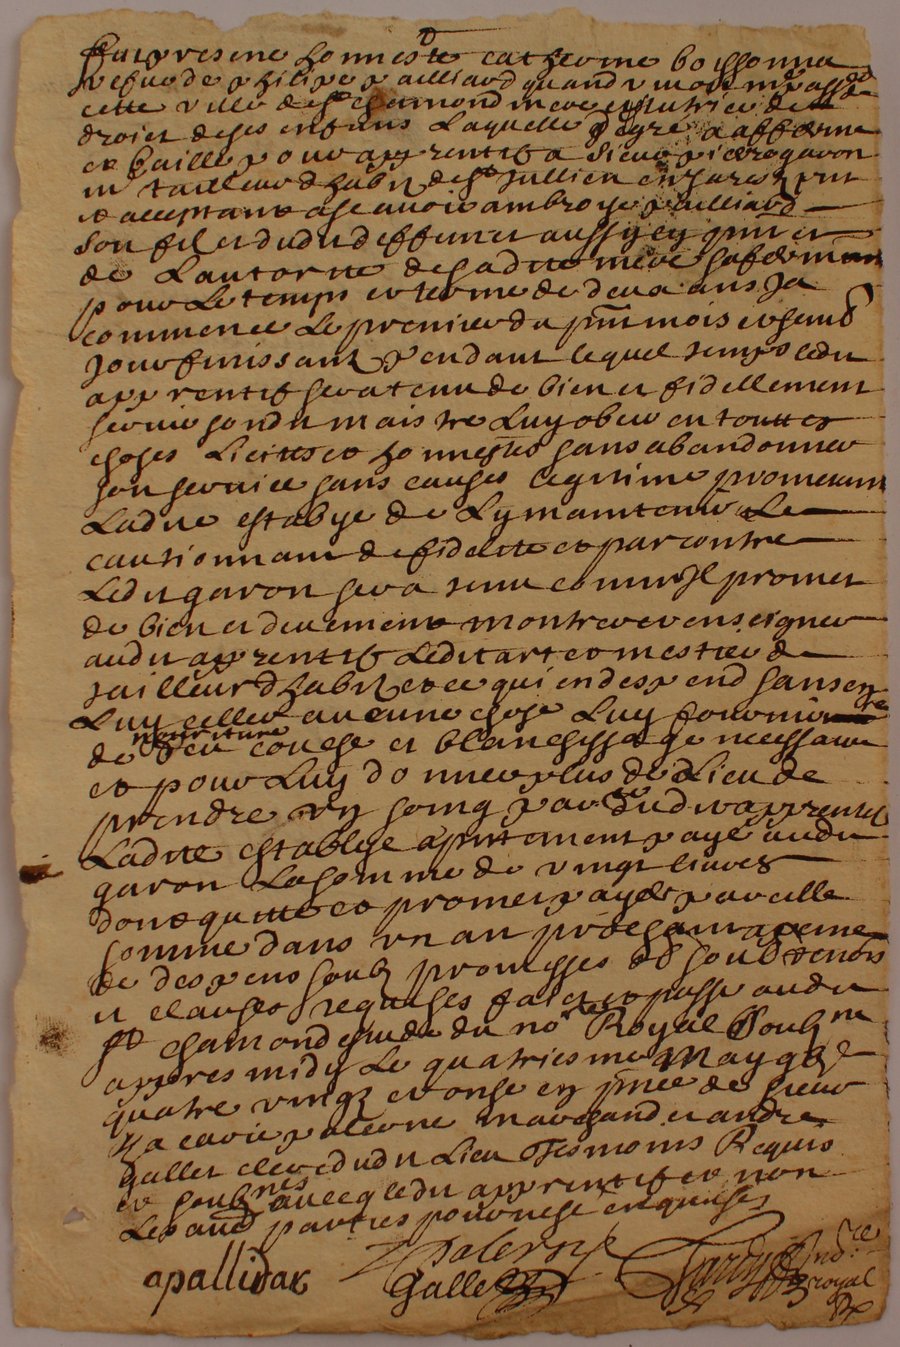 Fut presene honneste catherine boissonna
vefue de philipe pailliard quand vivoit mre
cette ville de st chamond mere et tutrice de
droict de ses enfans Laquelle de gre a afferme
et baille pour apprentif a sieur pierre garon
mre tailleur dhabitz de st Jullien en Jarez pnt
et acceptant ascavoir ambroise pailliard
son filz et dudit deffunct aussy icy pnt et
de Lautorite de sadite mere saferment
pour Le temps et terme de deux ans Ja
commence Le premier du pnt mois et semb
Jour finissant pendant lequel temps ledit
apprentif sera tenu de bien et fidellement
servir sondit maistre Luy obeir en touttes
choses Licittes et honnestes sans abandonner
son service sans causes legitime prometant
Ladite establye de Ly maintenir Le
cautionnant de fidelite et par contre
Ledit garon sera tenu comme Jl promet
de bien et deuement montrer et enseigner
audit apprentif Ledit art et mestier de
tailleur dhabitz et ce qui en despend sans en
Luy celler aucune chose Luy fournir
nourriture
de feu couche et blanchissage necessaire
et pour Luy donner plus de Lieu de
prendre ung soing par dudit apprentif
Ladite establye a pntement paye audit
garon La somme de vingt livres
dont quitte et promet payer pareille
somme dans un an prochain a peine
de despens soubz promesses soubz renons
et clauses requises faict et passe audit
st chamond estude du nore Royal soubzne
appres midy Le quatriesme May gbic
quatre vingz et onze en pnce de sieur
Zacarie palerne marchand et andre
gallet clerc dudit Lieu Tesmoins Requis
et soubznes avecq ledit apprentif et non
Les autres parties pour ne scavoir enquises
apalliar
Palerne
Gallet
Tardy no.re
royal